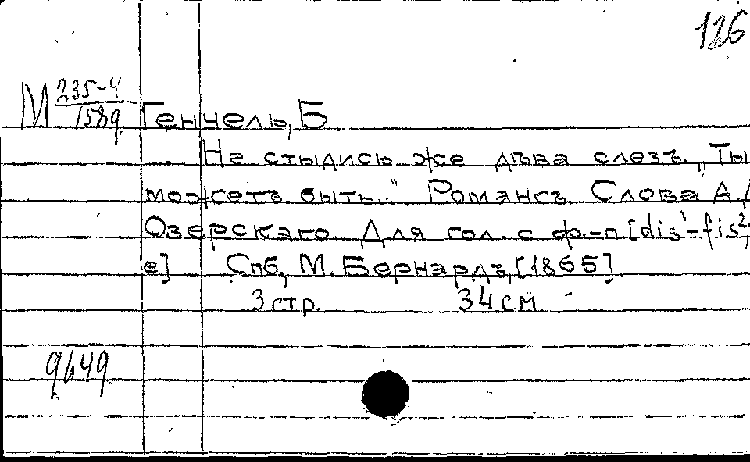 126
М 235-4
158g Генчель, Б
Не стыдись же дѣва слезъ. „Ты
можетъ быть..." Романсъ Слова А.
Озерскаго Для гол. с ф.-п [dis¹-fis²,
e] Спб, М. Бернардъ, [1865]
3 стр. 34 см
9649